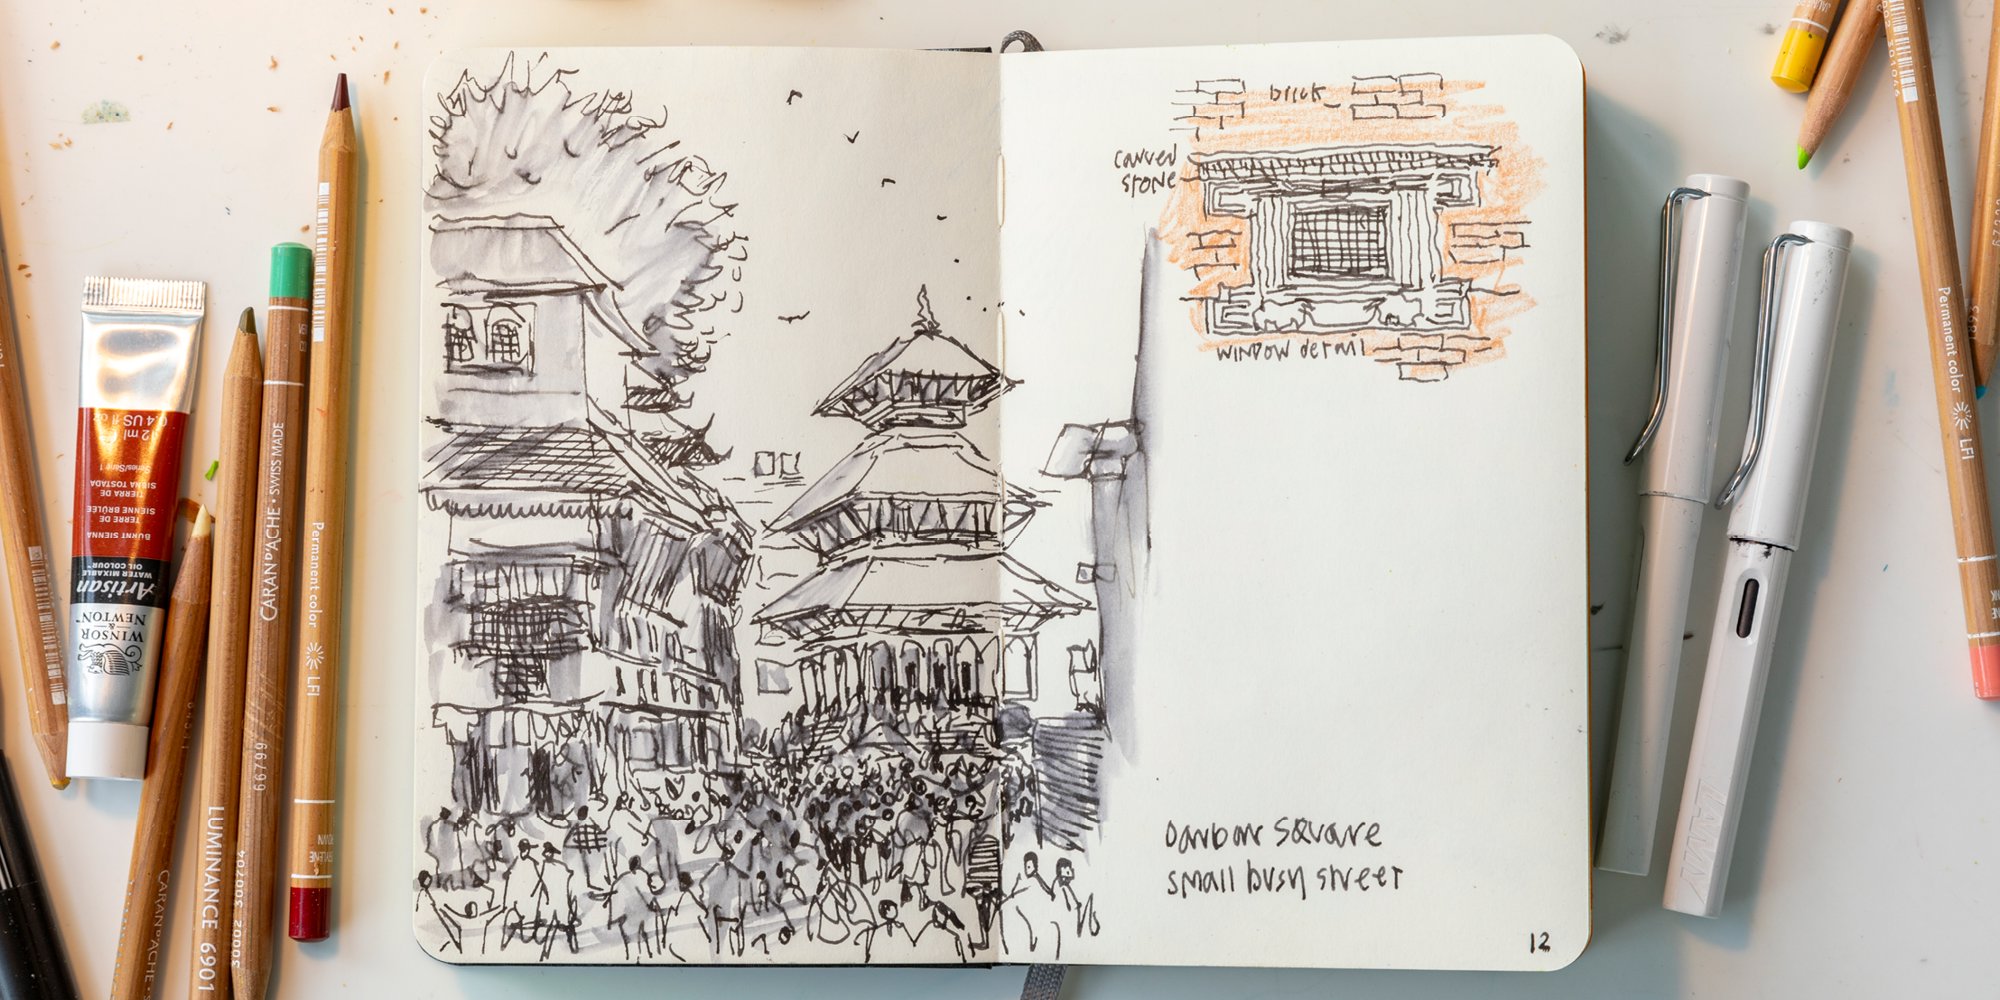 brick
carved
stone
window detail
Darbar Square
small busy street
12
12 ml
0,4 US fl oz
Series/Série 1
SIENA TOSTADA
TIERRA DE
SIENNE BRÛLÉE
TERRE DE
BURNT SIENNA
OIL COLOUR
WATER MIXABLE
Artisan
WINSOR
&
NEWTON
CARAN D'ACHE
LUMINANCE 6901
66799
CARAN D'ACHE • SWISS MADE
Permanent color LFI
Permanent color LFI
LAMY